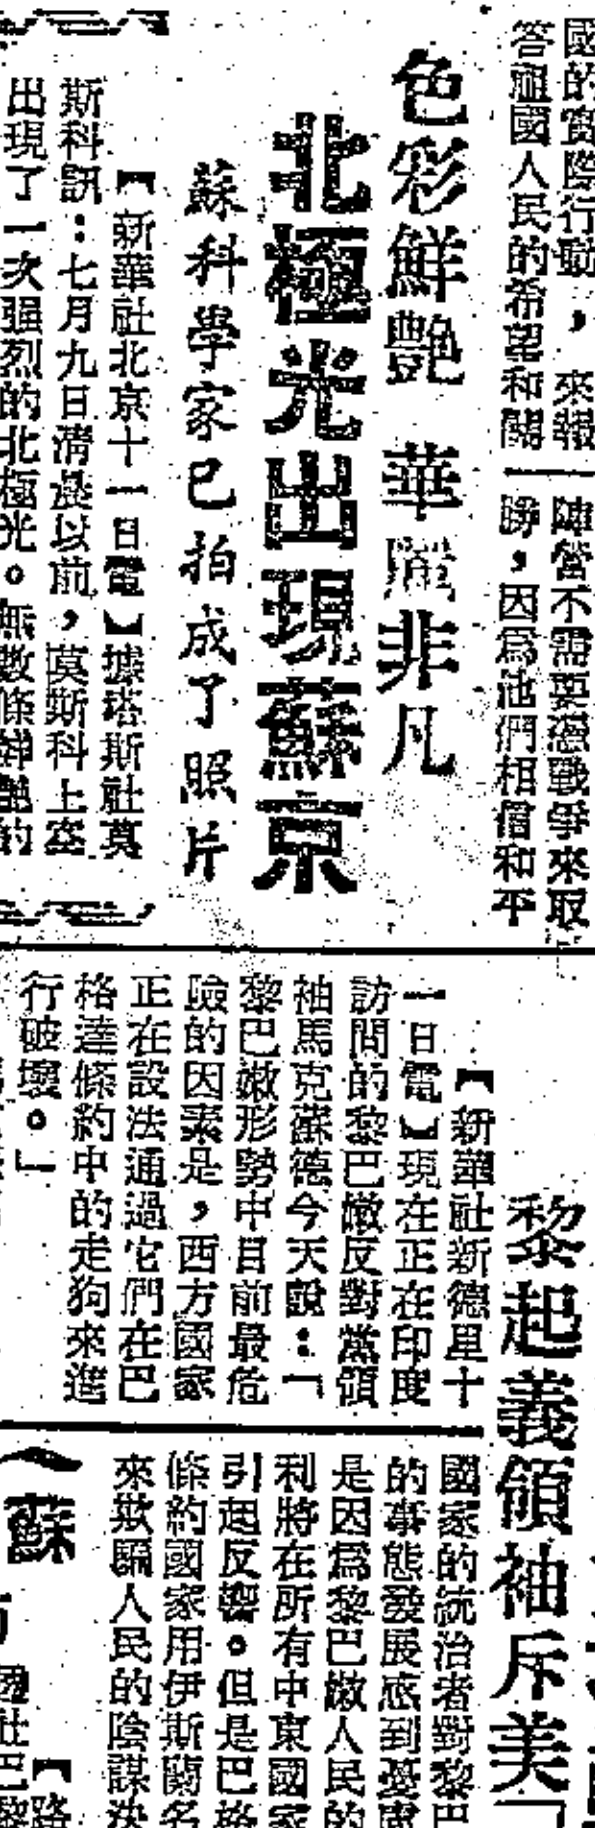 國的實際行動，來報
答祖國人民的希望和關
陣營不需要憑戰爭來取
勝，因爲他們相信和平
色彩鮮艷　華麗非凡
北極光出現蘇京
蘇科學家已拍成了照片
【新華社北京十一日電】據塔斯社莫
斯科訊：七月九日清晨以前，莫斯科上空
出現了一次强烈的北極光。無數條鮮艷的
黎起義領袖斥美「
【新華社新德里十
一日電】現在正在印度
訪問的黎巴嫩反對黨領
袖馬克蘇德今天說：「
黎巴嫩形勢中目前最危
險的因素是，西方國家
正在設法通過它們在巴
格達條約中的走狗來進
行破壞。」
國家的統治者對黎巴
的事態發展感到憂慮
是因爲黎巴嫩人民的
利將在所有中東國家
引起反響。但是巴格
條約國家用伊斯蘭名
來欺騙人民的陰謀決
蘇
【路
社巴黎